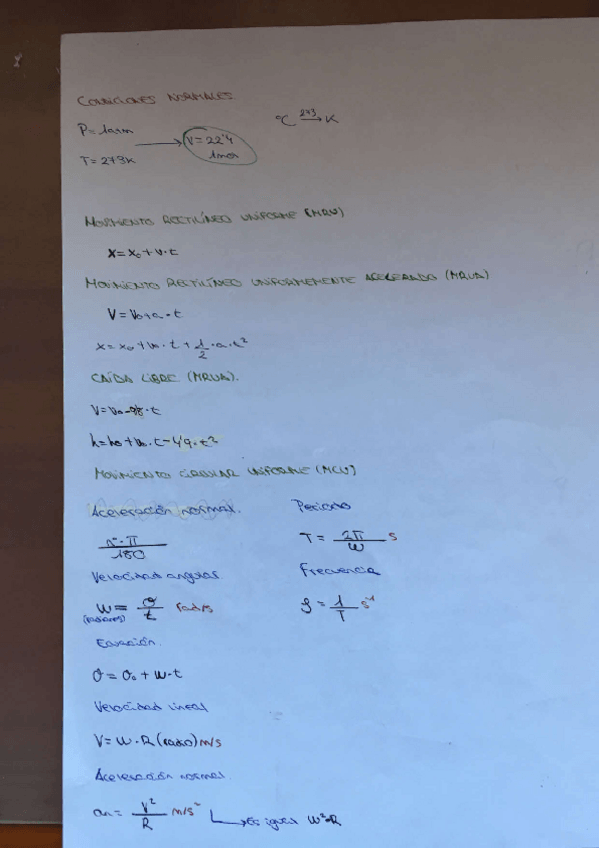 CONDICIONES NORMALES.
P= 1atm
T= 273K
V= 22'4
1mol
ºC 273→ K
MOVIMIENTO RECTILÍNEO UNIFORME (MRU)
x=x₀+v·t
MOVIMIENTO RECTILÍNEO UNIFORMEMENTE ACELERADO (MRUA)
V=V₀+a·t
x=x₀+v₀·t+1/2·a·t²
CAÍDA LIBRE (MRUA).
V=V₀-9'8·t
h=h₀+v₀·t-4'9·t²
MOVIMIENTO CIRCULAR UNIFORME (MCU)
Aceleración normal. Periodo
·π/180 T= 2π/W s
Velocidad angular Frecuencia
W= θ/t rad/s f= 1/T s⁻¹
(radianes)
Ecuación.
θ=θ₀+W·t
Velocidad lineal
V=W·R(radio)m/s
Aceleración normal.
an= V²/R m/s² ↳Es igual W²·R